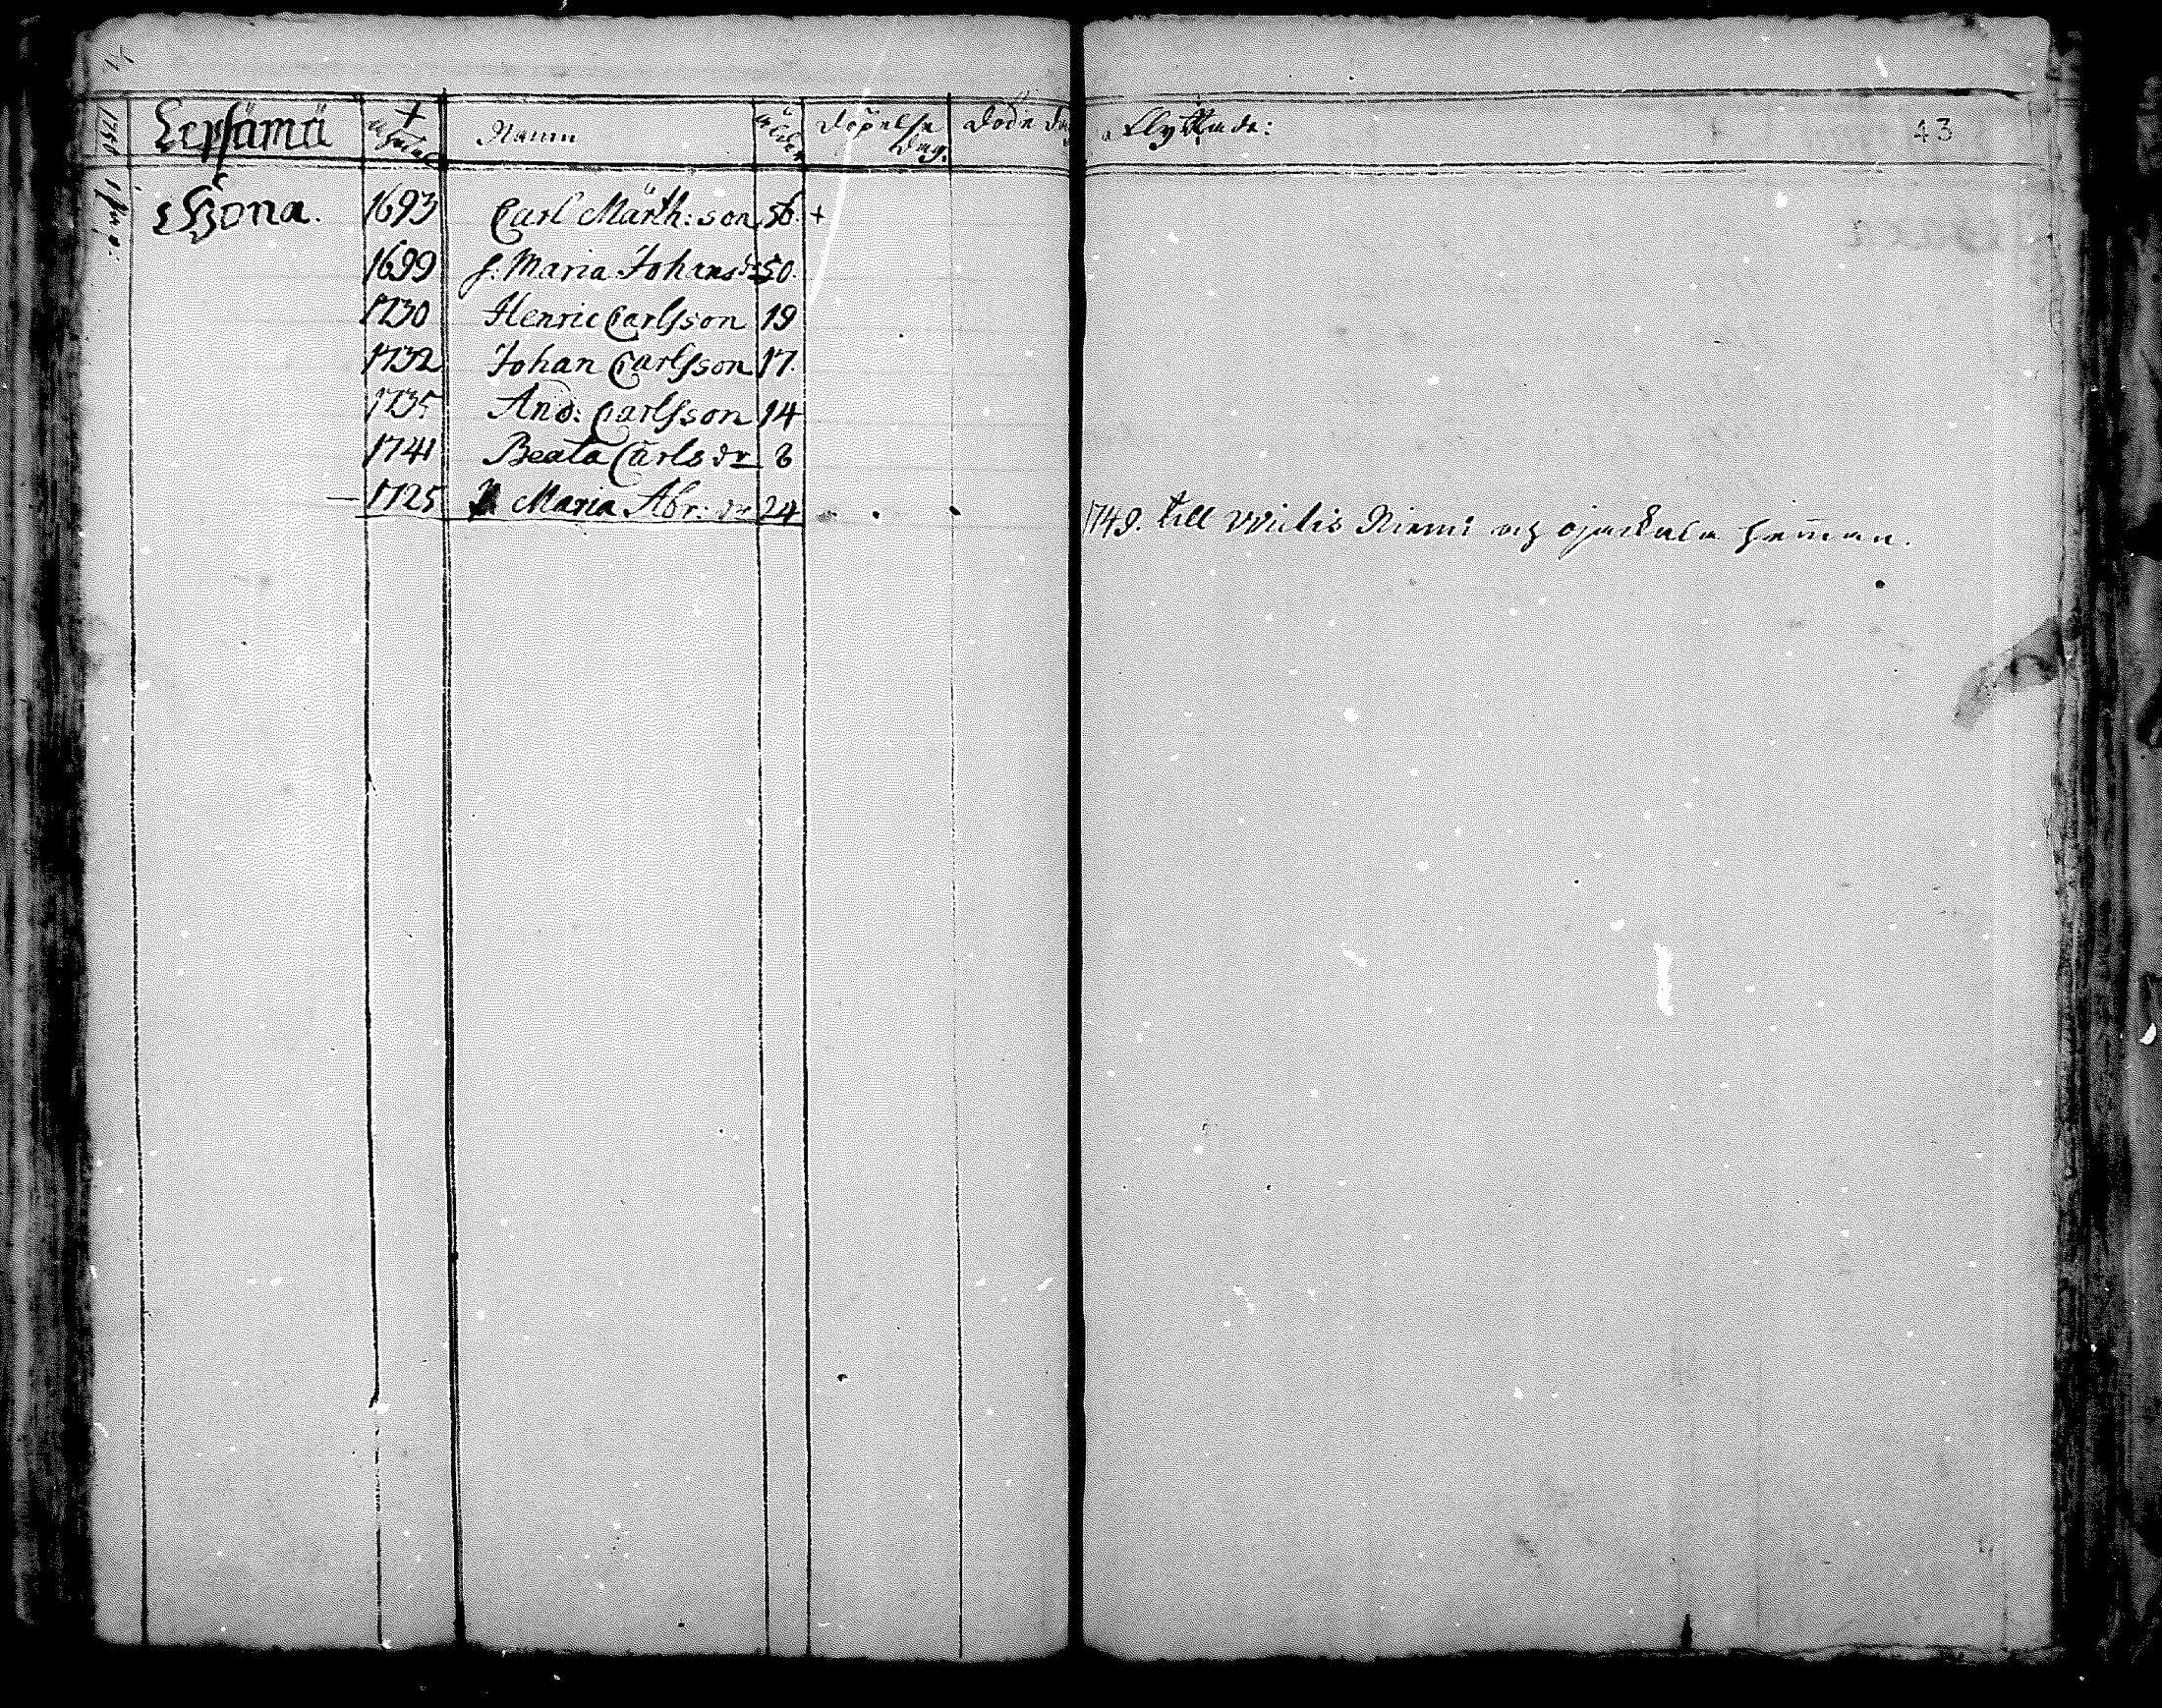 Lepsämä Namn Ålder Döpelse Dag. Döde da flyttade: 43
1693 Carl Märth:son 56 +
1699 h. Maria Johans dr 50.
1730 Henric Carlsson 19
1732 Johan Carlsson 17.
1735 And: Carlsson 14
1741 Beata Carls dr 8
1725 Maria Abr: dr 24 1749. till Niemi och heman.